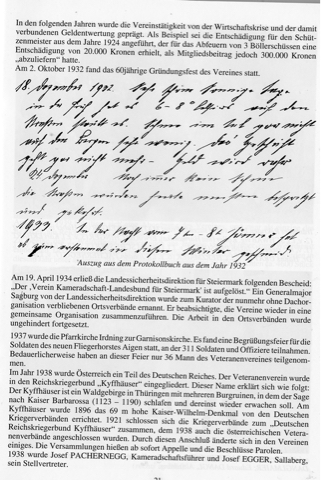 In den folgenden Jahren wurde die Vereinstätigkeit von der Wirtschaftskrise und der damit
verbundenen Geldentwertung geprägt. Als Beispiel sei die Entschädigung für den Schüt-
zenmeister aus dem Jahre 1924 angeführt, der für das Abfeuern von 3 Böllerschüssen eine
Entschädigung von 20.000 Kronen erhielt, als Mitgliedsbeitrag jedoch 300.000 Kronen
„abzuliefern“ hatte.
Am 2. Oktober 1932 fand das 60jährige Gründungsfest des Vereines statt.
18. Dezember 1932. Sehr schöne sonnige Tage
in der Früh hat es 6 - 8°
Straßen staubt es. Schnee im Tal gar nicht
auf den Bergen sehr wenig. das Geschäft
geht gar nicht mehr - Geld wird
24 dezember Noch immer kein Schnee
die Straßen
und
1933. In der Nacht vom 7ten - 8t Jänner hat
es zum erstenmal in diesem Winter geschneit
Auszug aus dem Protokollbuch aus dem Jahr 1932
Am 19. April 1934 erließ die Landessicherheitsdirektion für Steiermark folgenden Bescheid:
„Der ‚Verein Kameradschaft-Landesbund für Steiermark‘ ist aufgelöst.“ Ein Generalmajor
Sagburg von der Landessicherheitsdirektion wurde zum Kurator der nunmehr ohne Dachor-
ganisation verbliebenen Ortsverbände ernannt. Er beabsichtigte, die Vereine wieder in eine
gemeinsame Organisation zusammenzuführen. Die Arbeit in den Ortsverbänden wurde
ungehindert fortgesetzt.
1937 wurde die Pfarrkirche Irdning zur Garnisonskirche. Es fand eine Begrüßungsfeier für die
Soldaten des neuen Fliegerhorstes Aigen statt, an der 311 Soldaten und Offiziere teilnahmen.
Bedauerlicherweise haben an dieser Feier nur 36 Mann des Veteranenvereines teilgenom-
men.
Im Jahr 1938 wurde Österreich ein Teil des Deutschen Reiches. Der Veteranenverein wurde
in den Reichskriegerbund „Kyffhäuser“ eingegliedert. Dieser Name erklärt sich wie folgt:
Der Kyffhäuser ist ein Waldgebirge in Thüringen mit mehreren Burgruinen, in dem der Sage
nach Kaiser Barbarossa (1123 – 1190) schlafen und dereinst wieder erwachen soll. Am
Kyffhäuser wurde 1896 das 69 m hohe Kaiser-Wilhelm-Denkmal von den Deutschen
Kriegerverbänden errichtet. 1921 schlossen sich die Kriegerverbände zum „Deutschen
Reichskriegerbund Kyffhäuser“ zusammen, dem 1938 auch die österreichischen Vetera-
nenverbände angeschlossen wurden. Durch diesen Anschluß änderte sich in den Vereinen
einiges. Die Versammlungen hießen ab sofort Appelle und die Beschlüsse Parolen.
1938 wurde Josef PACHERNEGG, Kameradschaftsführer und Josef EGGER, Sallaberg,
sein Stellvertreter.